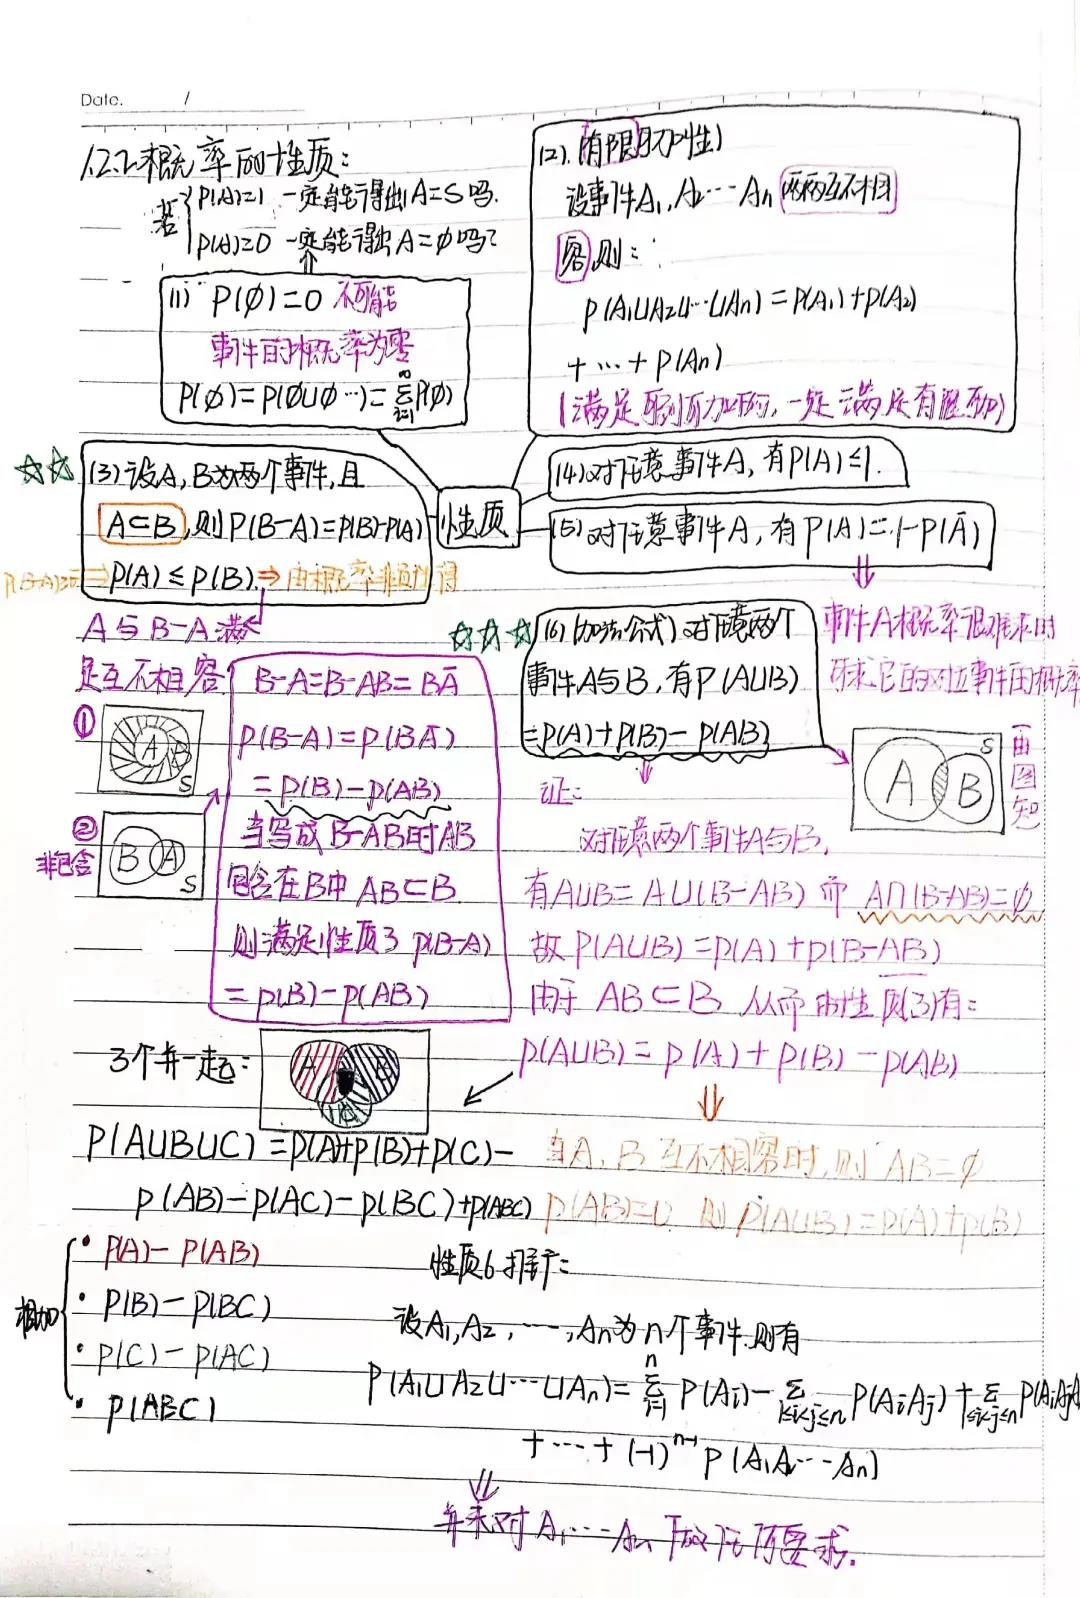 Date. /
1.2.2 概率的性质：
若 P(A)=1 一定能得出A=S吗.
P(A)=0 一定能得出A=∅吗?
(1) P(∅)=0 不可能
事件的概率为零
P(∅)=P(∅∪∅…)=∑P(∅)
i=1
∞
(2). (有限可加性)
设事件A₁,A₂…An 两两互不相
容,则：
P(A₁∪A₂∪…∪An)=P(A₁)+P(A₂)
+…+P(An)
(满足可列可加的,一定满足有限可加)
(3)设A,B为两个事件,且
A⊂B,则P(B-A)=P(B)-P(A)
P(B-A)≥0⇒P(A)≤P(B).⇒由概率非负性得
性质
(4)对任意事件A,有P(A)≤1.
(5)对任意事件A,有P(A)=1-P(Ā)
事件A概率很难求时
求它的对立事件的概率
A与B-A满
足互不相容
① A B S
② 非包含 B A S
B-A=B-AB=BĀ
P(B-A)=P(BĀ)
=P(B)-P(AB)
当写成B-AB时AB
包含在B中 AB⊂B
则满足性质3 P(B-A)
=P(B)-P(AB)
(6)(加法公式)对任意两个
事件A与B,有P(A∪B)
=P(A)+P(B)-P(AB)
A B S
由图知
证：
对任意两个事件A与B,
有A∪B=A∪(B-AB)而 A∩(B-AB)=∅
故P(A∪B)=P(A)+P(B-AB)
由于 AB⊂B 从而由性质(3)有：
P(A∪B)=P(A)+P(B)-P(AB)
当A、B互不相容时,则 AB=∅
P(AB)=0 则 P(A∪B)=P(A)+P(B)
3个并一起：
P(A∪B∪C)=P(A)+P(B)+P(C)-
P(AB)-P(AC)-P(BC)+P(ABC)
相加
• P(A)-P(AB)
• P(B)-P(BC)
• P(C)-P(AC)
• P(ABC)
性质6推广：
设A₁,A₂,…,An为n个事件.则有
n
P(A₁∪A₂∪…∪An)=∑P(Ai)-∑P(AiAj)+∑P(AiAjA
i=1 1≤i<j≤n
+…+(-1)ⁿ⁻¹P(A₁A₂…An)
并未对A₁…An 任何要求.